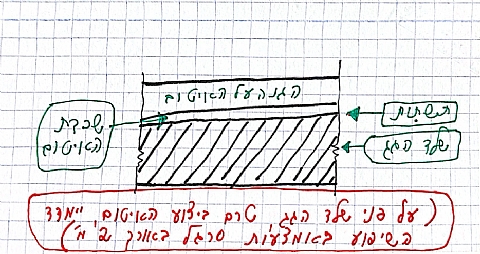 הגנה על האיטום
שכבת
האיטום
התשתית
שלד הגג
(על פני שלד הגג טרם ביצוע האיטום, יימדד
השיפוע באמצעות סרגל באורך של 2 מ')